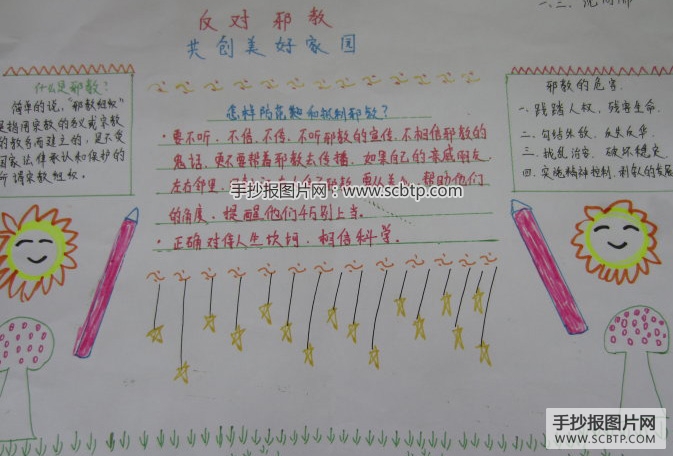 一、三、
反对邪教
共创美好家园
什么是邪教?
简单的说,"邪教组织"
是指冒用宗教的名义或宗教
的教务而建立的,是不受
国家法律承认和保护的
所谓宗教组织。
怎样防范和抵制邪教?
·要不听、不信、不传、不听邪教的宣传,不相信邪教的
鬼话,更不要帮着邪教去传播,如果自己的亲戚朋友
左右邻里 帮助他们
的角度,提醒他们特别上当。
·正确对待人生坎坷,相信科学。
邪教的危害
一、践踏人权,残害生命。
二、勾结失效,反失反华。
三、扰乱治安,破坏稳定
四、实施精神控制,
手抄报图片网:www.scbtp.com
手抄报图片网
WWW.SCBTP.COM